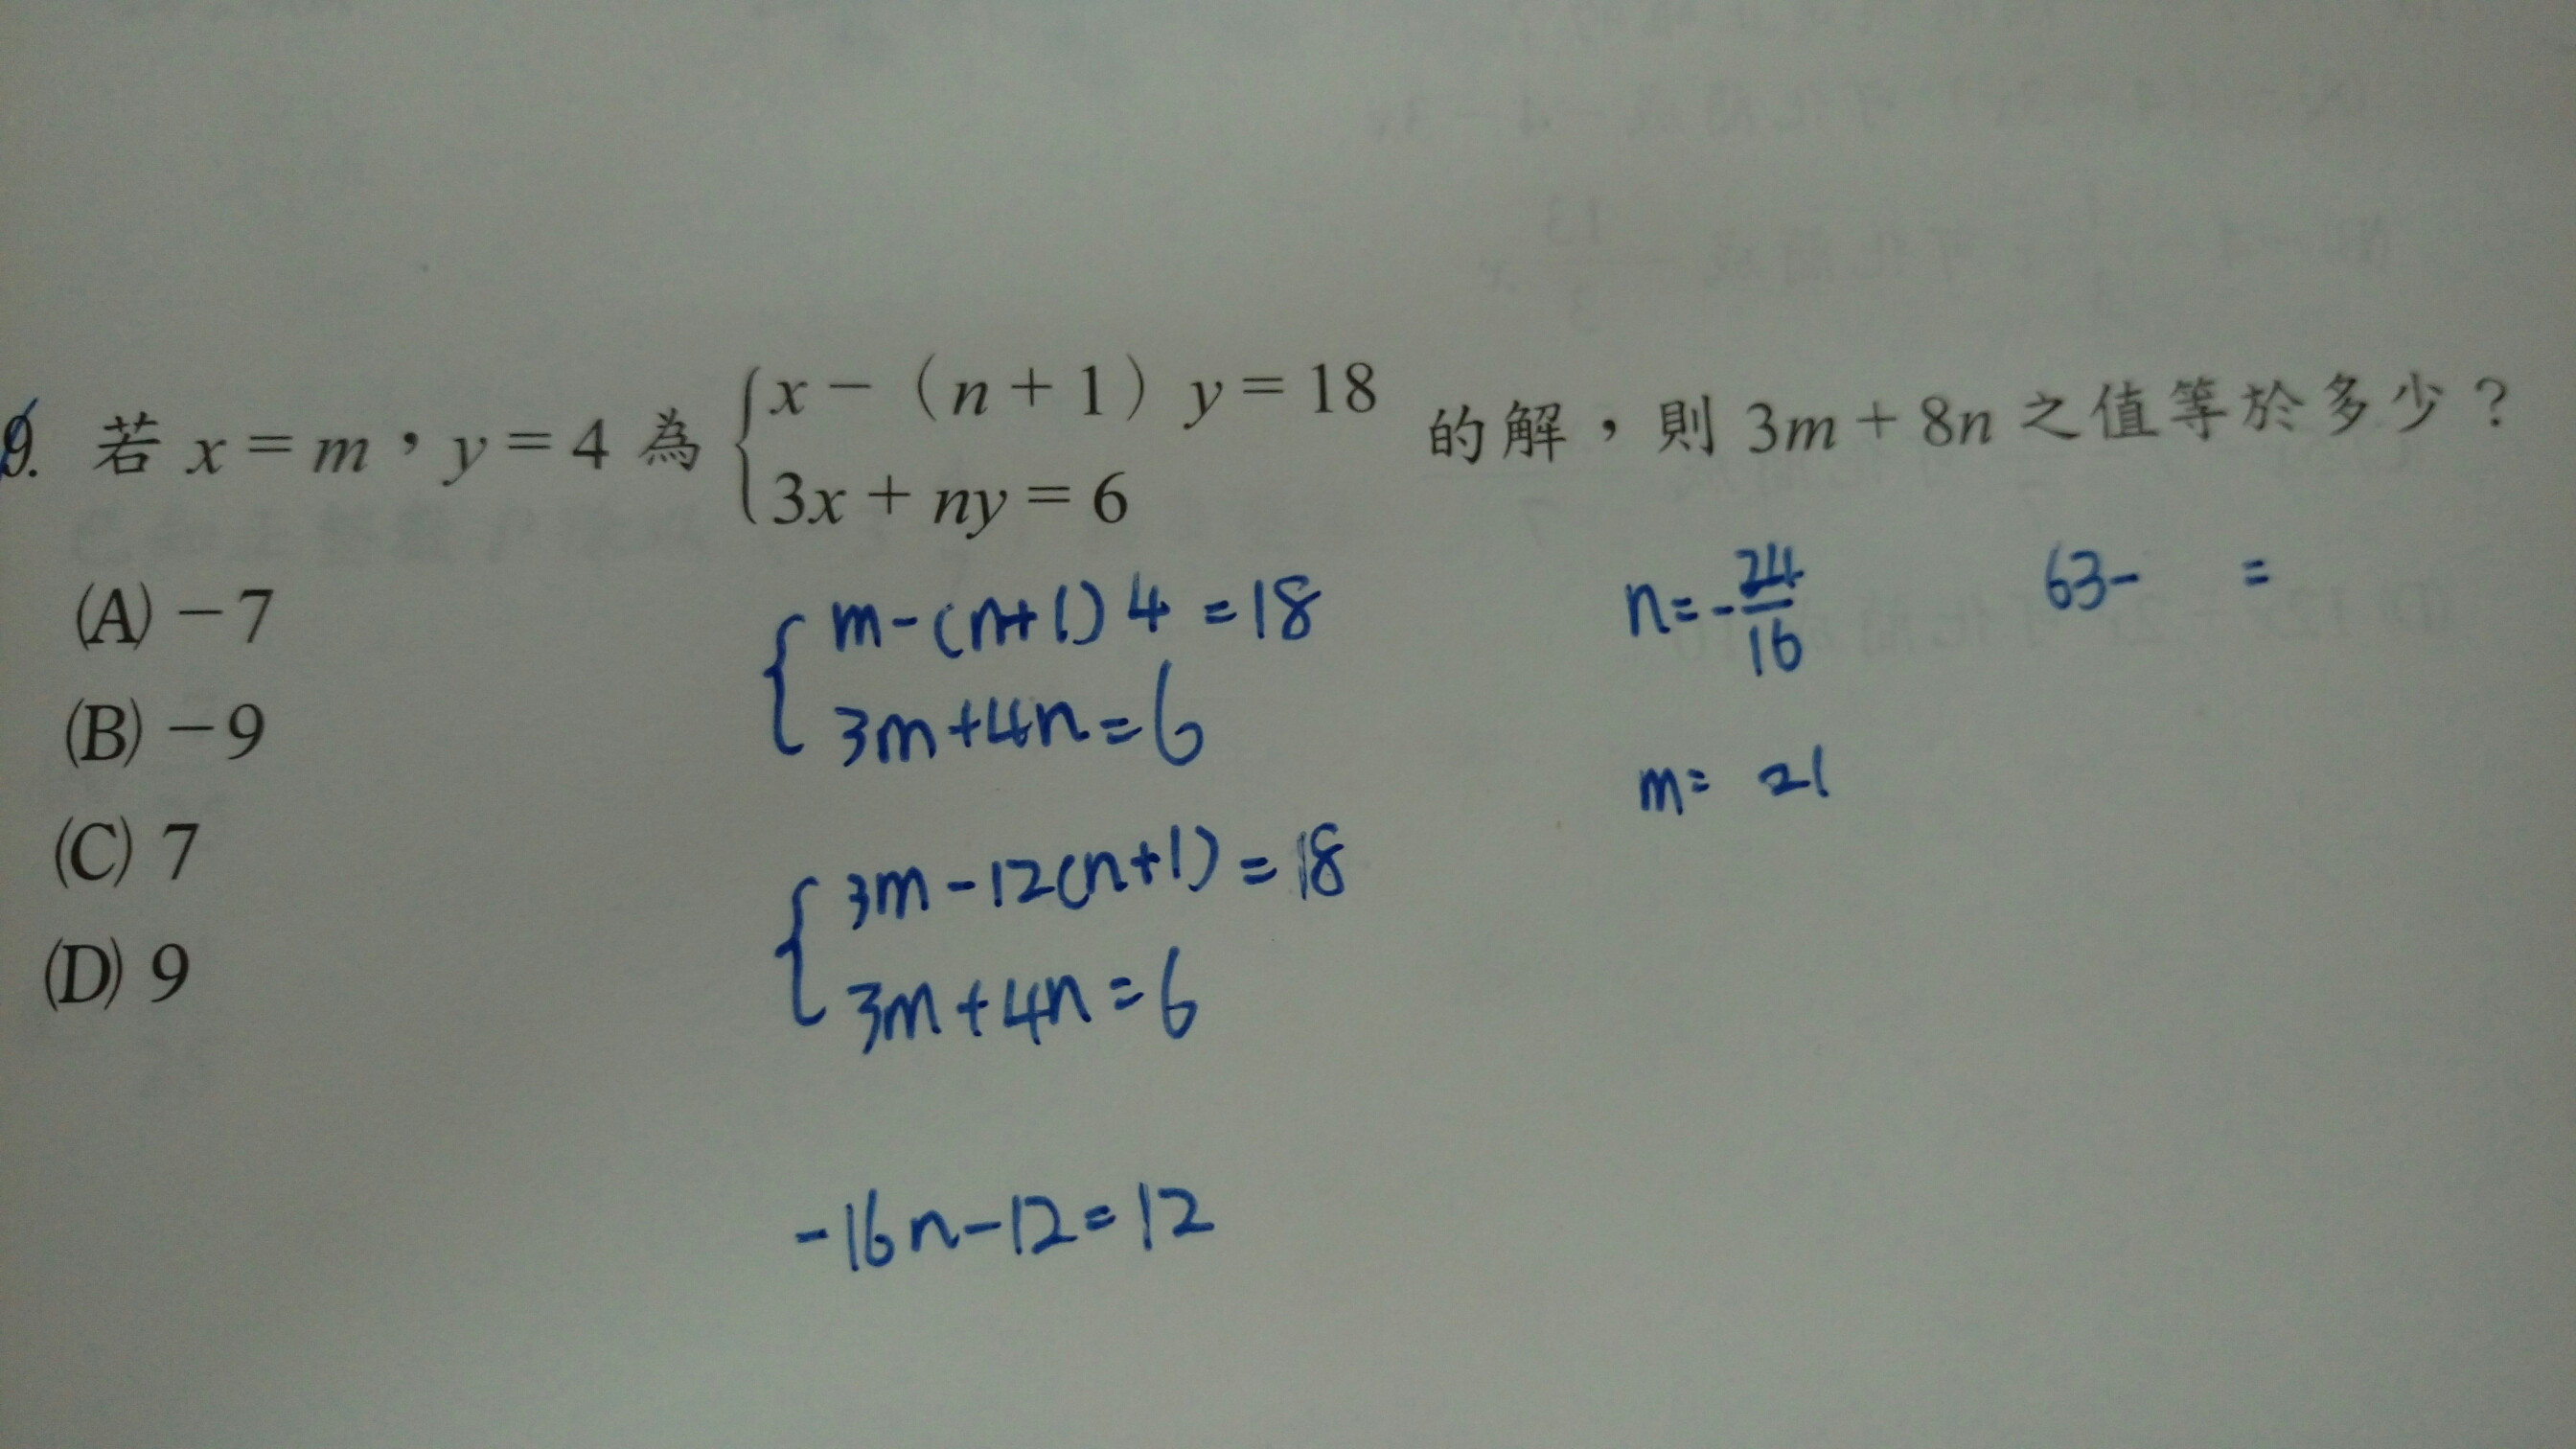 9. 若 x = m，y = 4 為 { x − （n + 1）y = 18 的解，則 3m + 8n 之值等於多少？
3x + ny = 6
(A) −7
(B) −9
(C) 7
(D) 9
{ m-(n+1)4 =18
3m+4n=6
{ 3m-12(n+1)=18
3m+4n=6
-16n-12=12
n=-24/16
m= 21
63- =